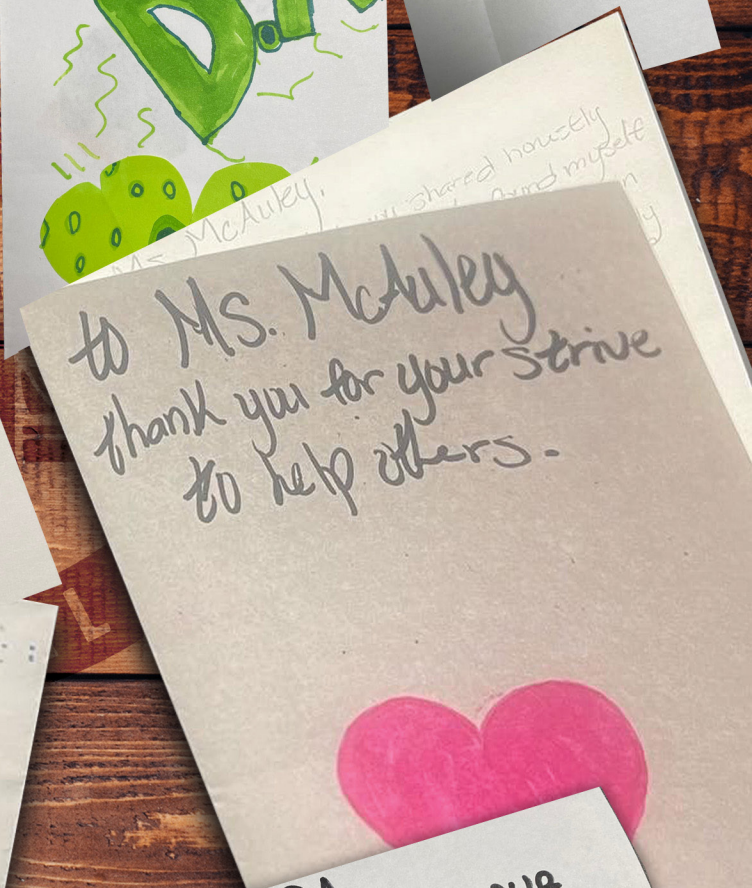 D.
Ms McAuley,
shared honestly
found myself
to Ms. McAuley
thank you for your strive
to help others.
L